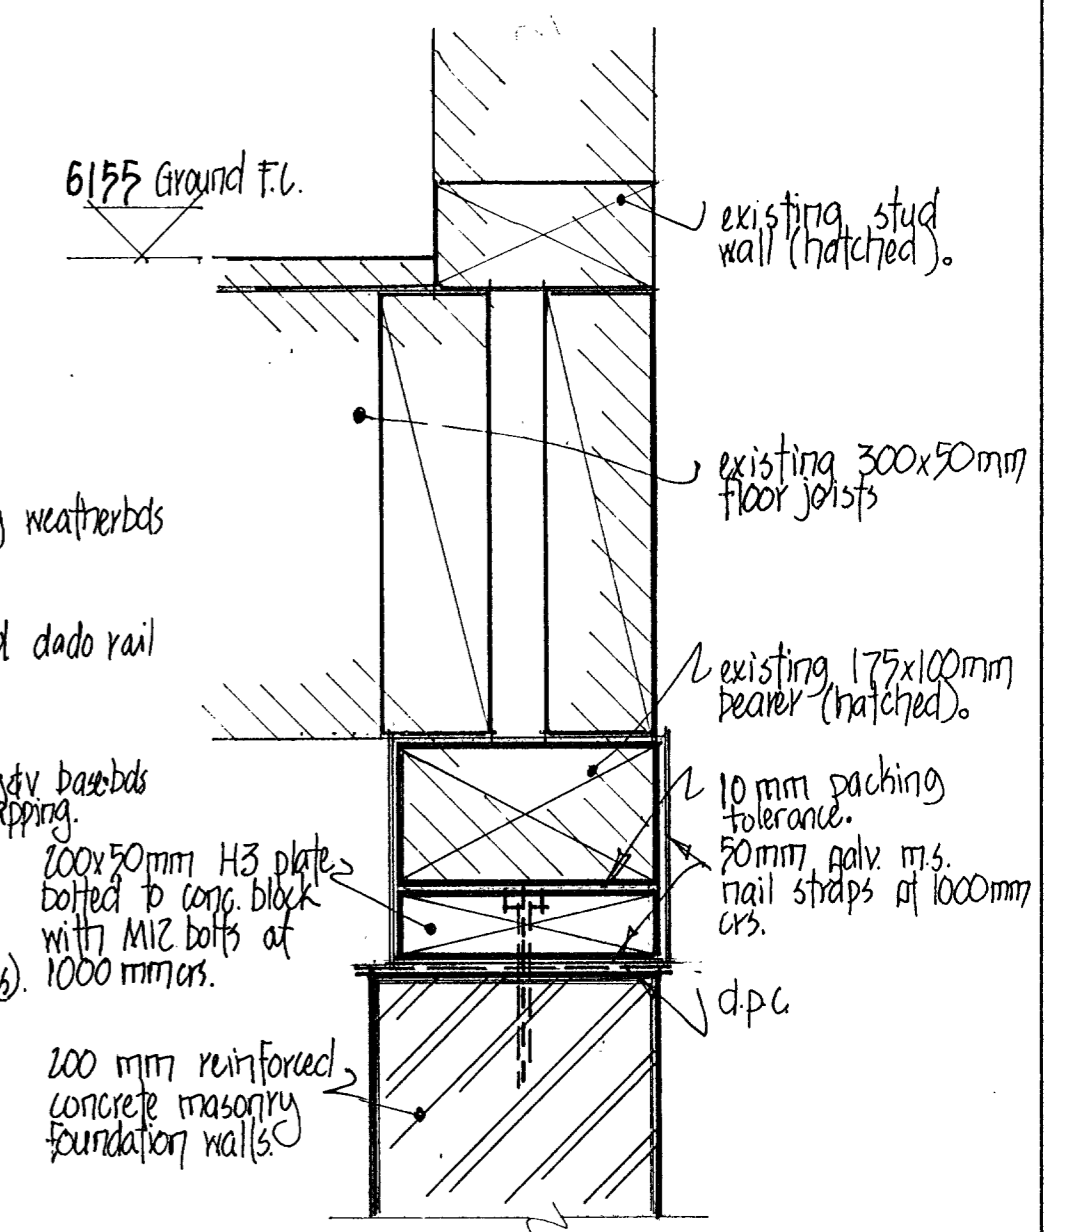 6155 Ground F.L.
existing stud
wall (hatched).
existing 300x50mm
floor joists
weatherbds
dado rail
existing 175x100mm
bearer (hatched).
base.bds
10 mm packing
tolerance.
200x50mm H3 plate
bolted to conc. block
with M12 bolts at
1000 mm crs.
50mm galv. m.s.
nail straps at 1000mm
crs.
d.p.c.
200 mm reinforced
concrete masonry
foundation walls.